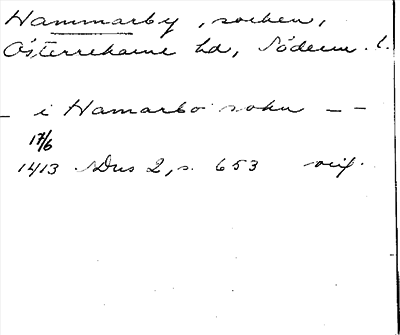 Hammarby, socken,
Österrekarne hd, Söderm. l.
– i Hamarbo sokn – –
17/6
1413 SDns 2, s. 653 orig.